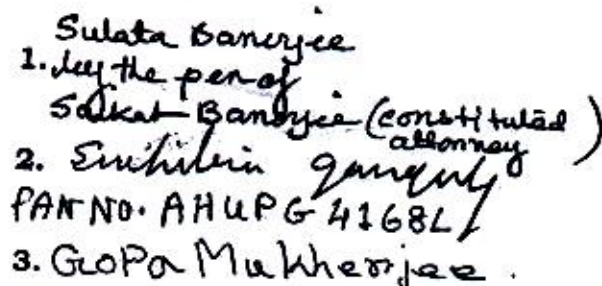 Sulata Banerjee
1. by the pen of
Saikat Banerjee (constituted
attorney)
2. Ganguly
PAN NO. AHUPG4168L
3. GOPA Mukherjee.